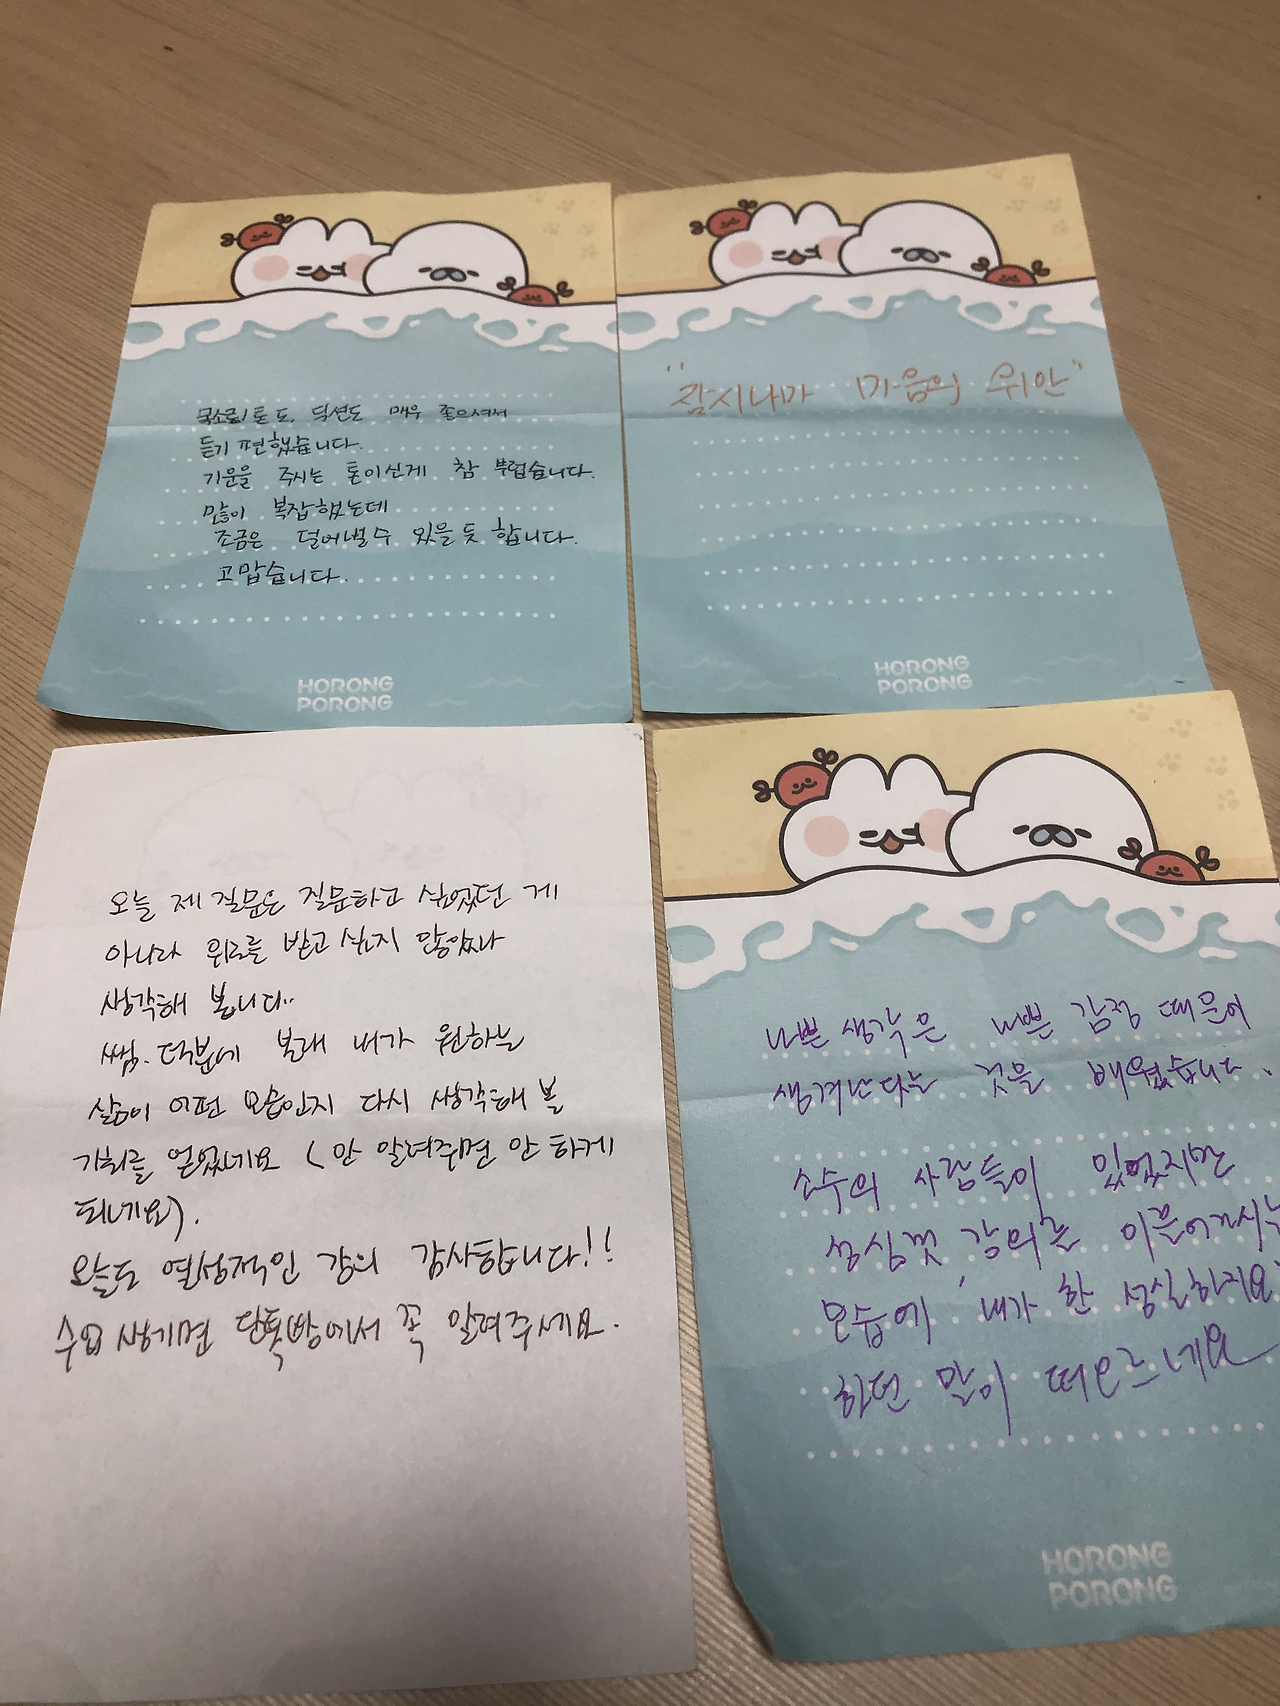 목소리 톤도, 딕션도 매우 좋으셔서
듣기 편했습니다.
기운을 주시는 톤이신게 참 부럽습니다.
많이 복잡했는데
조금은 덜어낼 수 있을 듯 합니다.
고맙습니다.
HORONG
PORONG
"잠시나마 마음의 위안"
HORONG
PORONG
오늘 제 질문은 질문하고 싶었던 게
아니라 위로를 받고 싶지 않았나
생각해 봅니다..
쌤. 덕분에 본래 내가 원하는
삶이 어떤 모습인지 다시 생각해 볼
기회를 얻었네요 (안 알려주면 안 하게
되네요).
오늘도 열성적인 강의 감사합니다!!
수업 생기면 단톡방에서 꼭 알려주세요.
나쁜 생각은 나쁜 감정 때문에
생겨난다는 것을 배웠습니다.
소수의 사람들이 있었지만
성심껏 강의를 이끌어가시는
모습에 '내가 한 성실하지요'
하던 말이 떠오르네요
HORONG
PORONG